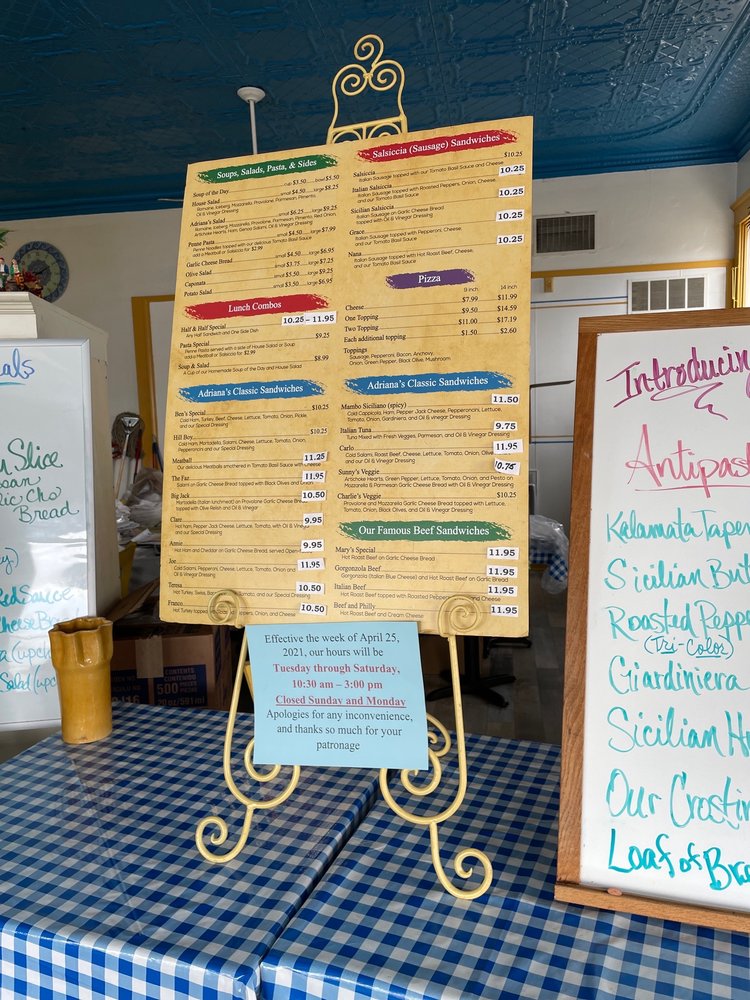 Soups, Salads, Pasta, & Sides
Soup of the Day cup $3.50 bowl $5.50
House Salad small $4.50 large $8.25
Romaine, Iceberg, Mozzarella, Provolone, Parmesan, Pimento,
Oil & Vinegar Dressing
Adriana's Salad small $6.25 large $9.25
Romaine, Iceberg, Mozzarella, Provolone, Parmesan, Pimento, Red Onion,
Artichoke Hearts, Ham, Genoa Salami, Oil & Vinegar Dressing
Penne Pasta small $4.50 large $7.99
Penne Noodles topped with our delicious Tomato Basil Sauce
add a Meatball or Salsiccia for $2.99
Garlic Cheese Bread
Olive Salad small $4.50 large $6.95
Caponata small $3.75 large $7.25
Potato Salad small $5.50 large $9.25
small $3.75 large $6.95
Lunch Combos
Half & Half Special 10.25 – 11.95
Any Half Sandwich and One Side Dish
Pasta Special $9.25
Penne Pasta served with a side of House Salad or Soup
add a Meatball or Salsiccia for $2.99
Soup & Salad $8.99
A Cup of our Homemade Soup of the Day and House Salad
Adriana's Classic Sandwiches
Ben's Special $10.25
Cold Ham, Turkey, Beef, Cheese, Lettuce, Tomato, Onion, Pickle,
and our Special Dressing
Hill Boy $10.25
Cold Ham, Mortadella, Salami, Cheese, Lettuce, Tomato, Onion,
Pepperoncini and our Special Dressing
Meatball 11.25
Our delicious Meatballs smothered in Tomato Basil Sauce with Cheese
The Faz 11.95
Salami on Garlic Cheese Bread topped with Black Olives and Onion
Big Jack 10.50
Mortadella (Italian lunchmeat) on Provolone Garlic Cheese Bread
topped with Olive Relish and Oil and Vinegar
Clare 9.95
Hot Ham, Pepper Jack Cheese, Lettuce, Tomato, with Oil & Vinegar
and our Special Dressing
Annie 9.95
Hot Ham and Cheddar on Garlic Cheese Bread, served Open
Joe 11.95
Cold Salami, Pepperoni, Cheese, Lettuce, Tomato, Onion and
Oil & Vinegar Dressing
Teresa 10.50
Hot Turkey, Swiss, Tomato, and our Special Dressing
Franco 10.50
Hot Turkey topped with Peppers, Onion, and Cheese
Salsiccia (Sausage) Sandwiches
Salsiccia $10.25
Italian Sausage topped with our Tomato Basil Sauce and Cheese
Italian Salsiccia 10.25
Italian Sausage topped with Roasted Peppers, Onion, Cheese
and our Tomato Basil Sauce
Sicilian Salsiccia 10.25
Italian Sausage on Garlic Cheese Bread
topped with Oil & Vinegar Dressing
Grace 10.25
Italian Sausage topped with Pepperoni, Cheese,
and our Tomato Basil Sauce
Nana 10.25
Italian Sausage topped with Hot Roast Beef, Cheese,
and our Tomato Basil Sauce
Pizza
9 inch 14 inch
Cheese $7.99 $11.99
One Topping $9.50 $14.59
Two Topping $11.00 $17.19
Each additional topping $1.50 $2.60
Toppings
Sausage, Pepperoni, Bacon, Anchovy,
Onion, Green Pepper, Black Olive, Mushroom
Adriana's Classic Sandwiches
Mambo Siciliano (spicy) 11.50
Cold Cappicola, Ham, Pepper Jack Cheese, Pepperoncini, Lettuce,
Tomato, Onion, Giardiniera, and Oil & Vinegar Dressing
Italian Tuna 9.75
Tuna Mixed with Fresh Veggies, Parmesan, and Oil & Vinegar Dressing
Carlo 11.95
Cold Salami, Roast Beef, Cheese, Lettuce, Tomato, Onion, Olives
and our Oil & Vinegar Dressing
Sunny's Veggie 10.75
Artichoke Hearts, Green Pepper, Lettuce, Tomato, Onion, and Pesto on
Mozzarella & Parmesan Garlic Cheese Bread with Oil & Vinegar Dressing
Charlie's Veggie $10.25
Provolone and Mozzarella Garlic Cheese Bread topped with Lettuce,
Tomato, Onion, Black Olives, and Oil & Vinegar Dressing
Our Famous Beef Sandwiches
Mary's Special 11.95
Hot Roast Beef on Garlic Cheese Bread
Gorgonzola Beef 11.95
Gorgonzola (Italian Blue Cheese) and Hot Roast Beef on Garlic Bread
Italian Beef 11.95
Hot Roast Beef topped with Roasted Peppers, Onion
Beef and Philly 11.95
Hot Roast Beef and Cream Cheese
Effective the week of April 25,
2021, our hours will be
Tuesday through Saturday,
10:30 am – 3:00 pm
Closed Sunday and Monday
Apologies for any inconvenience,
and thanks so much for your
patronage
Slice
Bread
Red Sauce
Cheese
Salad
Introducin
Antipast
Kalamata Tapen
Sicilian But
Roasted Peppe
(Tri-Color)
Giardiniera
Sicilian
Our Crostin
Loaf of Bre